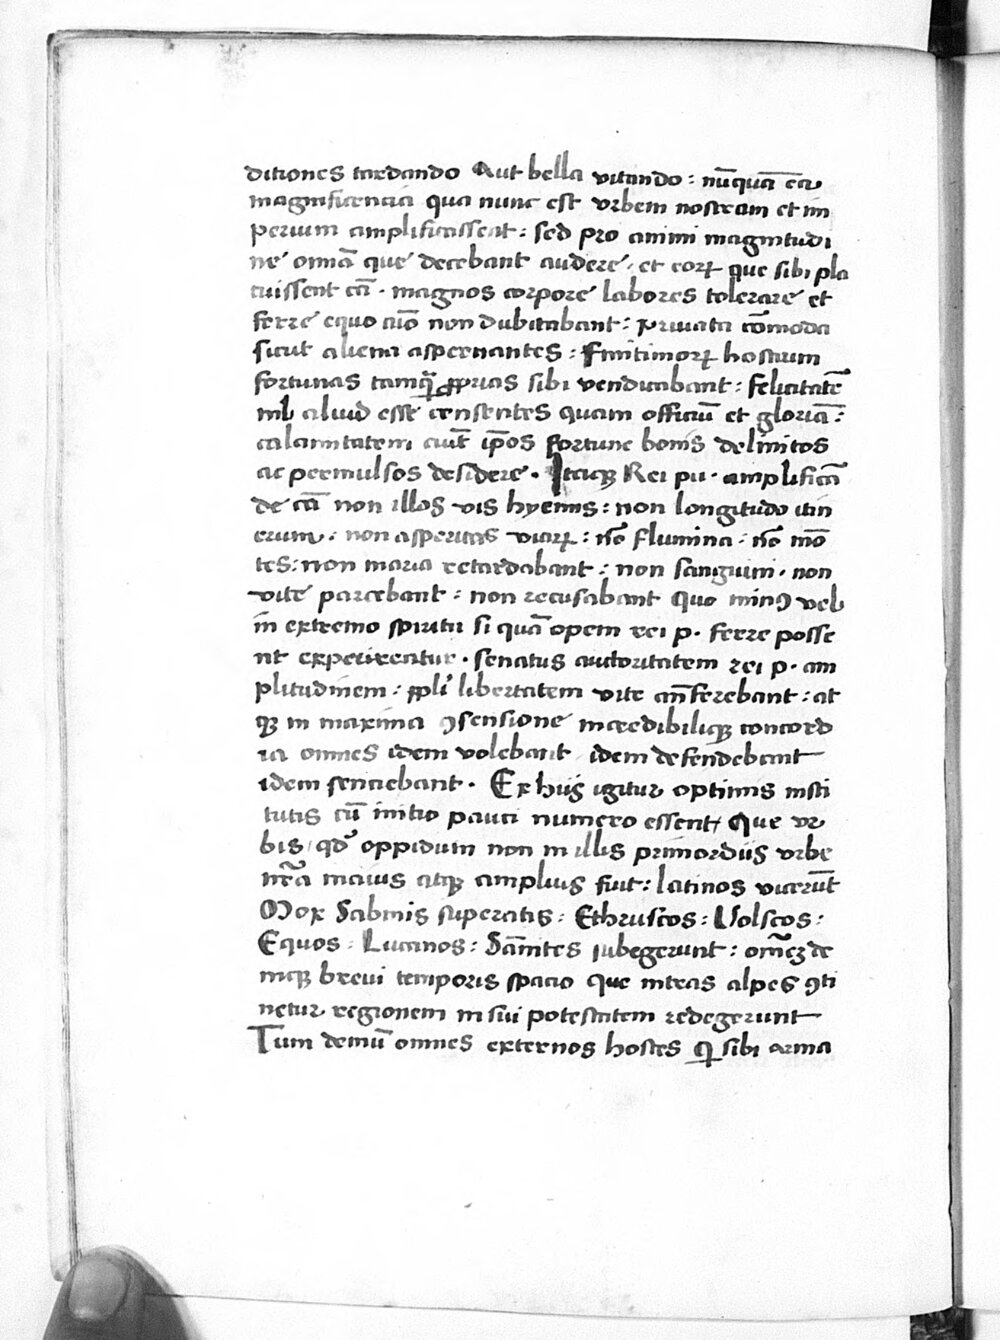 ditiones tardando Aut bella vitando : nūquā ea
magnificencia qua nunc est vrbem nostram et im
perium amplificassent : sed pro animi magnitudi
ne omīa que decebant audere , et eorꝝ que sibi pla
cuissent cā · magnos corpore labores tolerare et
ferre equo aīo non dubitabant : privata cōmoda
sicut aliena aspernantes : finitimorꝝ hostium
fortunas tamq̄ ꝓprias sibi vendicabant : felicitatē
nil aliud esse censentes quam officiū et gloriā :
calamitatem autē ip̄os fortune bonis delinitos
ac permulsos desidere · Itaqꝫ Rei pu · amplificā
de cā non illos vis hyemis : non longitudo itin
erum , non asperitas viarꝝ : nō flumina · nō mō
tes : non maria retardabant : non sanguini · non
vite parcebant : non recusabant quo minꝯ vel
in extremo spiritu si quā opem rei p · ferre posse
nt experirentur · senatus autoritatem rei p · am
plitudinem : ppl̄i libertatem vite an̄ferebant : at
qꝫ in maxima ꝯsensione incredibiliqꝫ concord
ia omnes idem volebant , idem defendebant
idem senciebant · Ex hiis igitur optimis insti
tutis cū initio pauci numero essent , Que vr
bis , qđ oppidum non in illis primordiis vrbe
nr̄a maius atqꝫ amplius fuit : latinos vicerūt
Mox Sabinis superatis : Ethruscos : Volscos :
Equos : Lucanos : Sāmites subegerunt : om̄ēqꝫ de
niqꝫ brevi temporis spacio que intras alpes ꝯti
netur regionem in sui potestatem redegerunt
Tum demū omnes externos hostes qͥ sibi arma